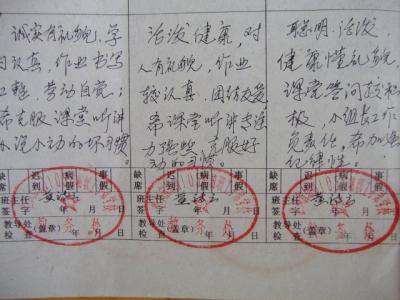 诚实有礼貌,学
习认真,作业书写
工整,劳动自觉;
希克服课堂听讲
小说小动的坏习惯。
活泼健康,对
人有礼貌,作业
较认真,团结友爱
希课堂听讲专注
聪明、活泼
健康懂礼貌,
课堂答问较积
极,小组长工作
负责任,希加强
纪律性。
缺席 迟到 病假 事假
班主任签字
年 月 日
教导处检查 (盖章)
年 月 日
教务处
缺席 迟到 病假 事假
班主任签字
年 月 日
教导处检查 (盖章)
年 月 日
教务处
缺席 迟到 病假 事假
班主任签字
年 月 日
教导处检查 (盖章)
年 月 日
教务处